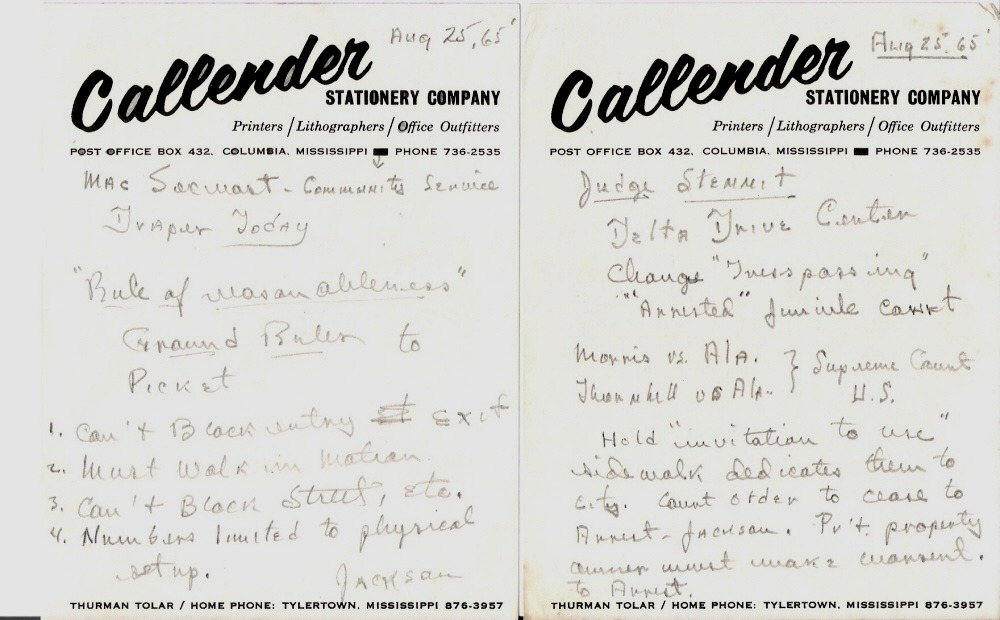 Aug 25, 65'
Callender
STATIONERY COMPANY
Printers / Lithographers / Office Outfitters
POST OFFICE BOX 432, COLUMBIA, MISSISSIPPI PHONE 736-2535
Mac - Community Service
Draper Today
"Rule of reasonableness"
Ground Rules to
Picket
1. Can't Block entry Exit
2. Must Walk in Motion
3. Can't Block Street, etc.
4. Numbers limited to physical
setup.
Jackson
THURMAN TOLAR / HOME PHONE: TYLERTOWN, MISSISSIPPI 876-3957
Aug 25, 65'
Callender
STATIONERY COMPANY
Printers / Lithographers / Office Outfitters
POST OFFICE BOX 432, COLUMBIA, MISSISSIPPI PHONE 736-2535
Judge Stennit
Delta Drive Center
Change "Tresspassing"
"Arrested" juvile court
vs. Ala.
Thornhill vs Ala. } Supreme Court
U.S.
Hold "invitation to use"
sidewalk dedicates them to
City. Court order to cease to
Arrest - Jackson. Pr't property
owner must make warrent.
to Arrest.
THURMAN TOLAR / HOME PHONE: TYLERTOWN, MISSISSIPPI 876-3957